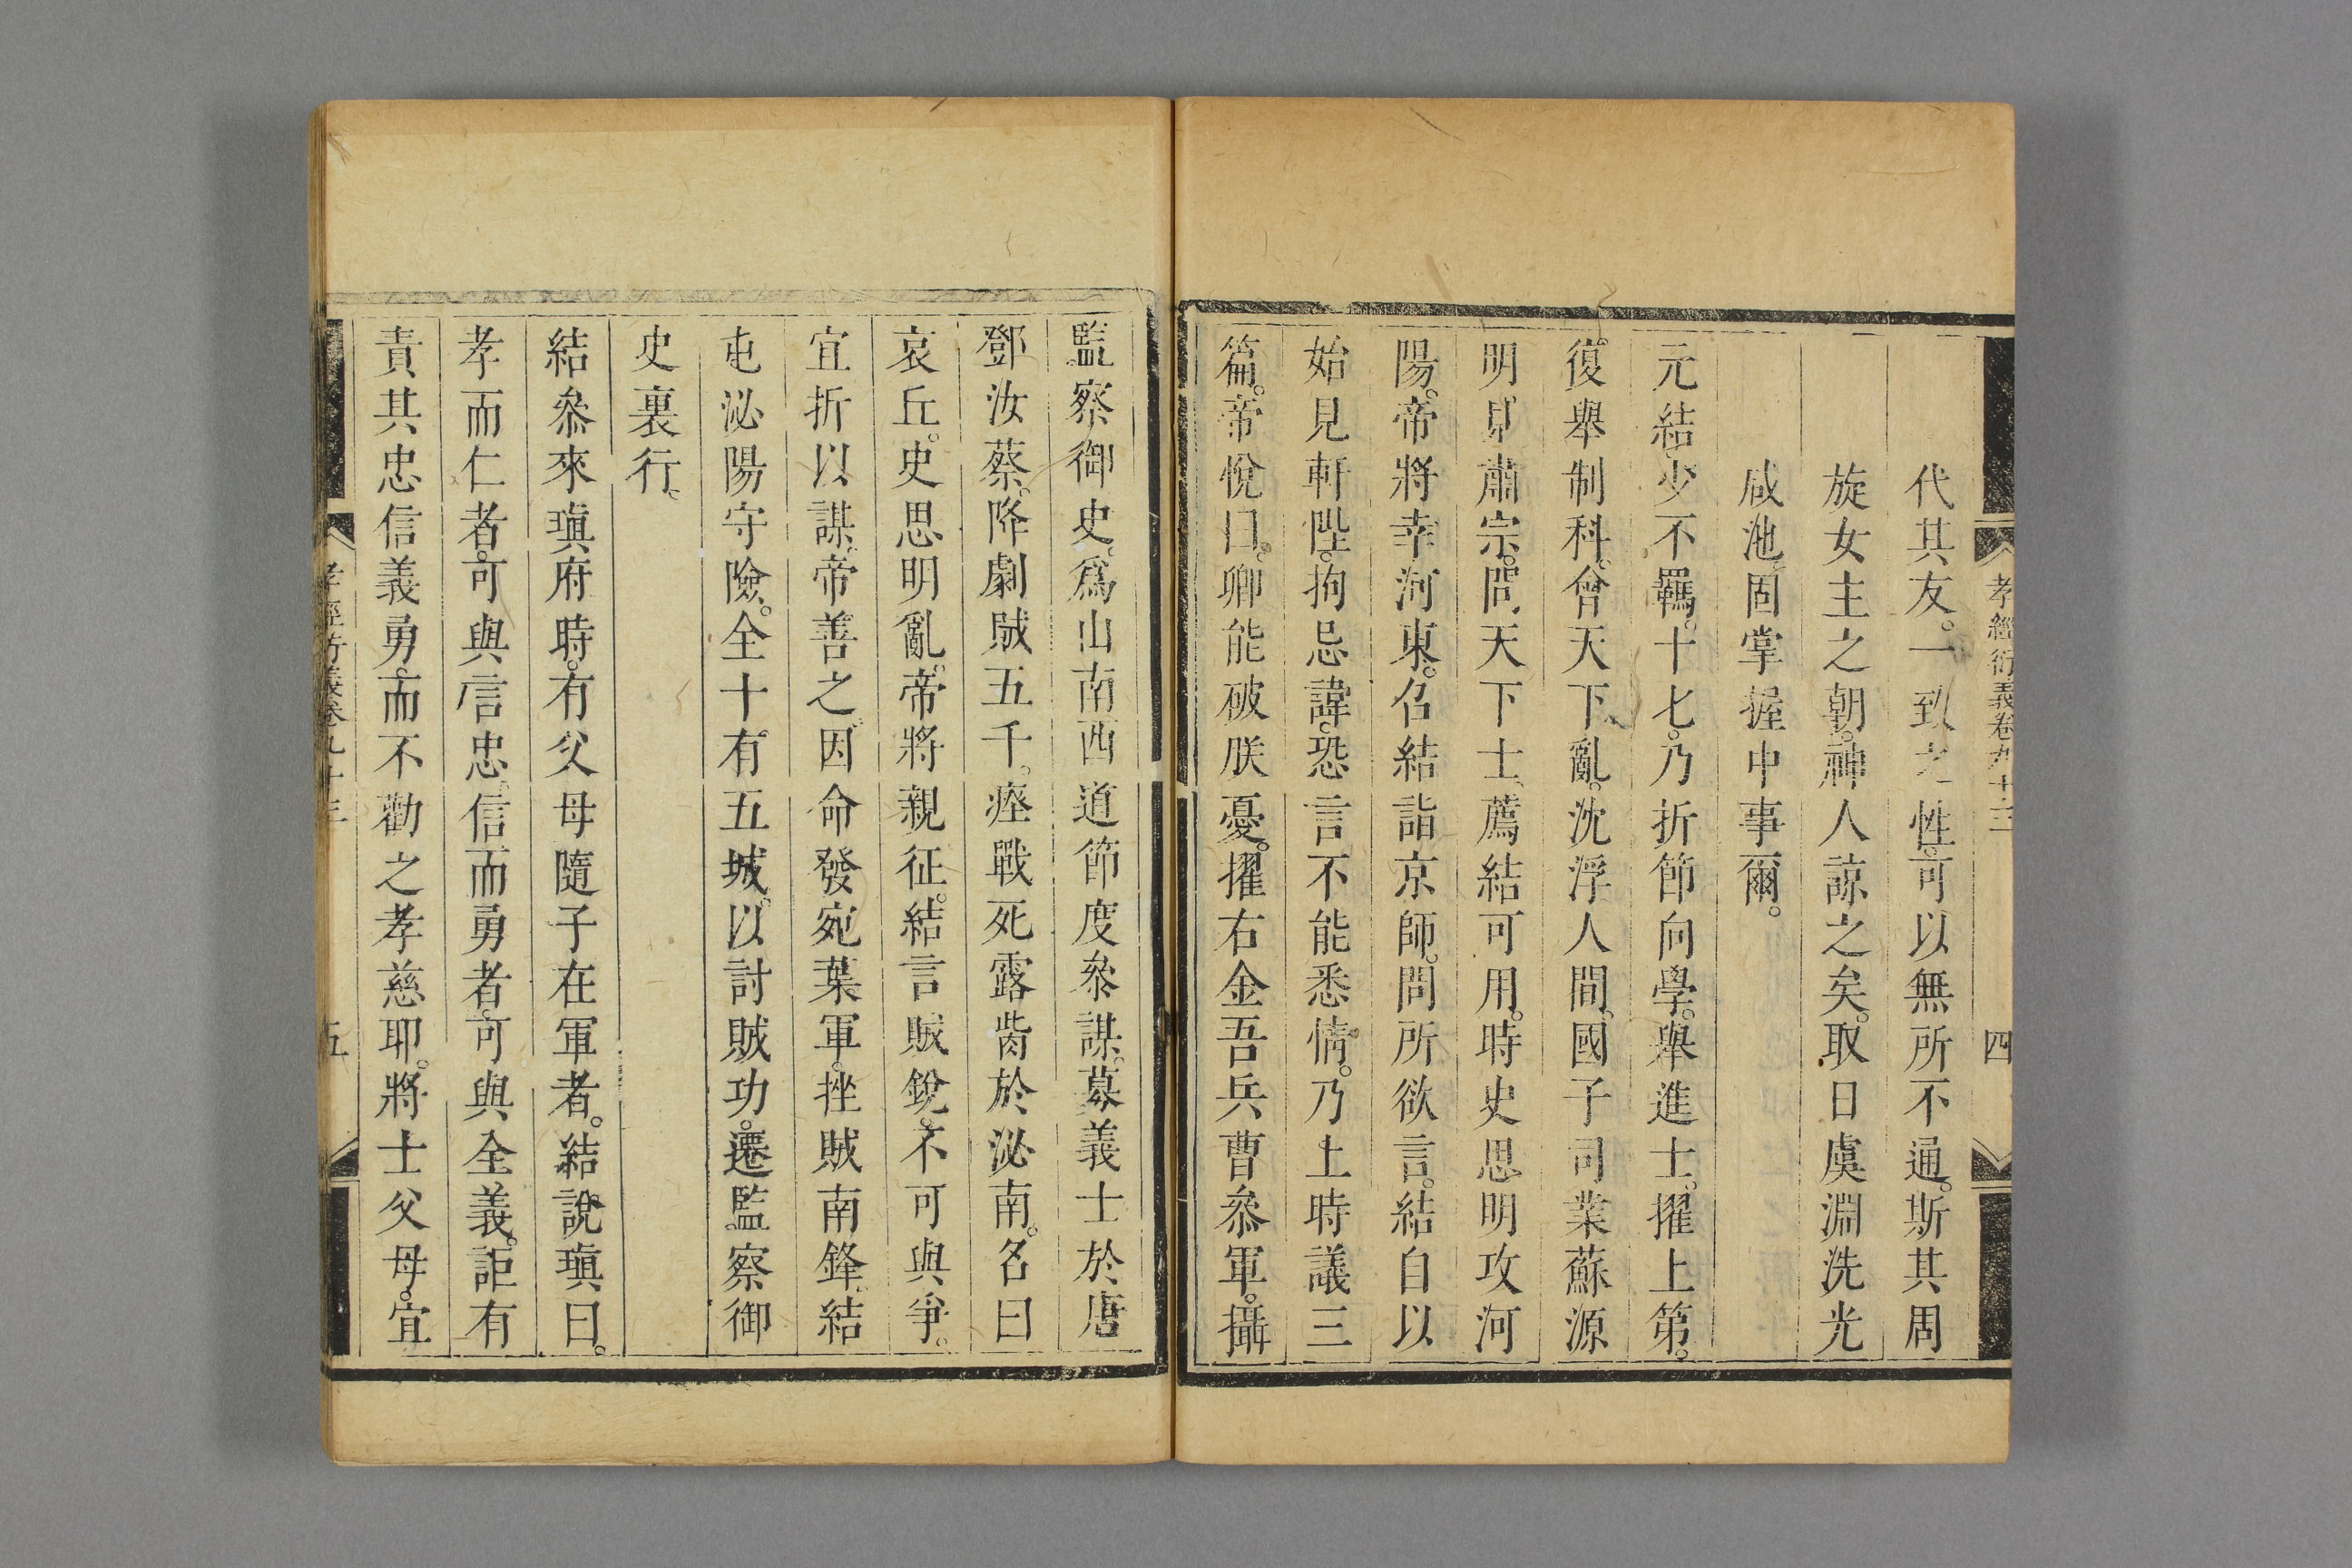 孝經衍義卷九十三 四
代其友。一致之性。可以無所不通。斯其周
旋女主之朝。神人諒之矣。取日虞淵洗光
咸池。固掌握中事爾。
元結。少不羈。十七。乃折節向學。舉進士。擢上第。
復舉制科。會天下亂。沈浮人間。國子司業蘇源
明。見肅宗。問天下士。薦結可用。時史思明攻河
陽。帝將幸河東。召結詣京師。問所欲言。結自以
始見軒陛。拘忌諱。恐言不能悉情。乃上時議三
篇。帝悅曰。卿能破朕憂。擢右金吾兵曹叅軍。攝
監察御史。爲山南西道節度叅謀。募義士於唐
鄧汝蔡。降劇賊五千。瘞戰死露胔於泌南。名曰
哀丘。史思明亂。帝將親征。結言賊銳。不可與爭。
宜折以謀。帝善之。因命發宛葉軍。挫賊南鋒。結
屯泌陽守險。全十有五城。以討賊功。遷監察御
史裏行。
結叅來瑱府時。有父母隨子在軍者。結說瑱曰。
孝而仁者。可與言忠。信而勇者。可與全義。詎有
責其忠信義勇。而不勸之孝慈耶。將士父母。宜
孝經衍義卷九十三 五